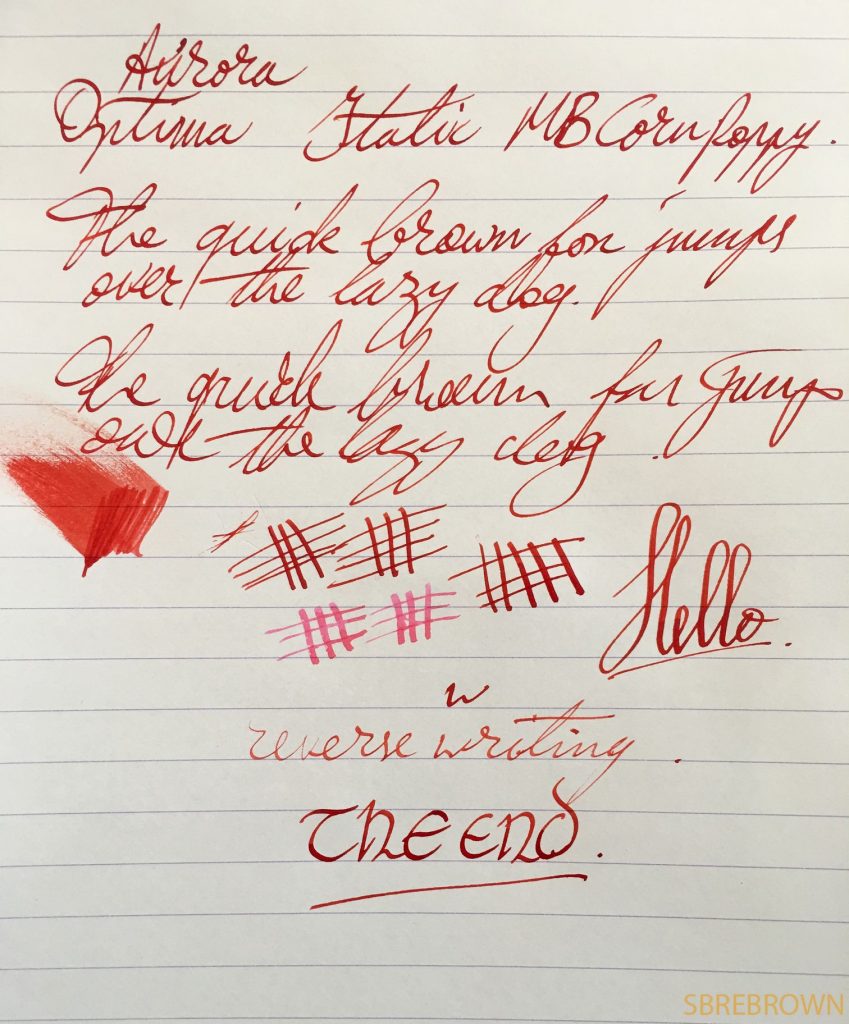 Aurora
Optima Italic MB Corn Poppy.
The quick brown fox jumps
over the lazy dog.
The quick brown fox jumps
over the lazy dog.
Hello.
w
reverse writing.
THE END.
SBREBROWN